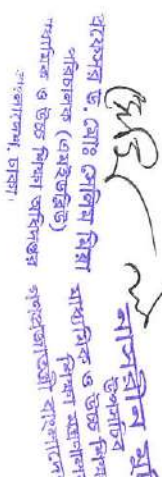 প্রফেসর ড. মোঃ সেলিম মিয়া
পরিচালক
মাধ্যমিক ও উচ্চ শিক্ষা অধিদপ্তর
বাংলাদেশ, ঢাকা।
উপসচিব
মাধ্যমিক ও উচ্চ শিক্ষা
শিক্ষা মন্ত্রণালয়
গণপ্রজাতন্ত্রী বাংলাদেশ